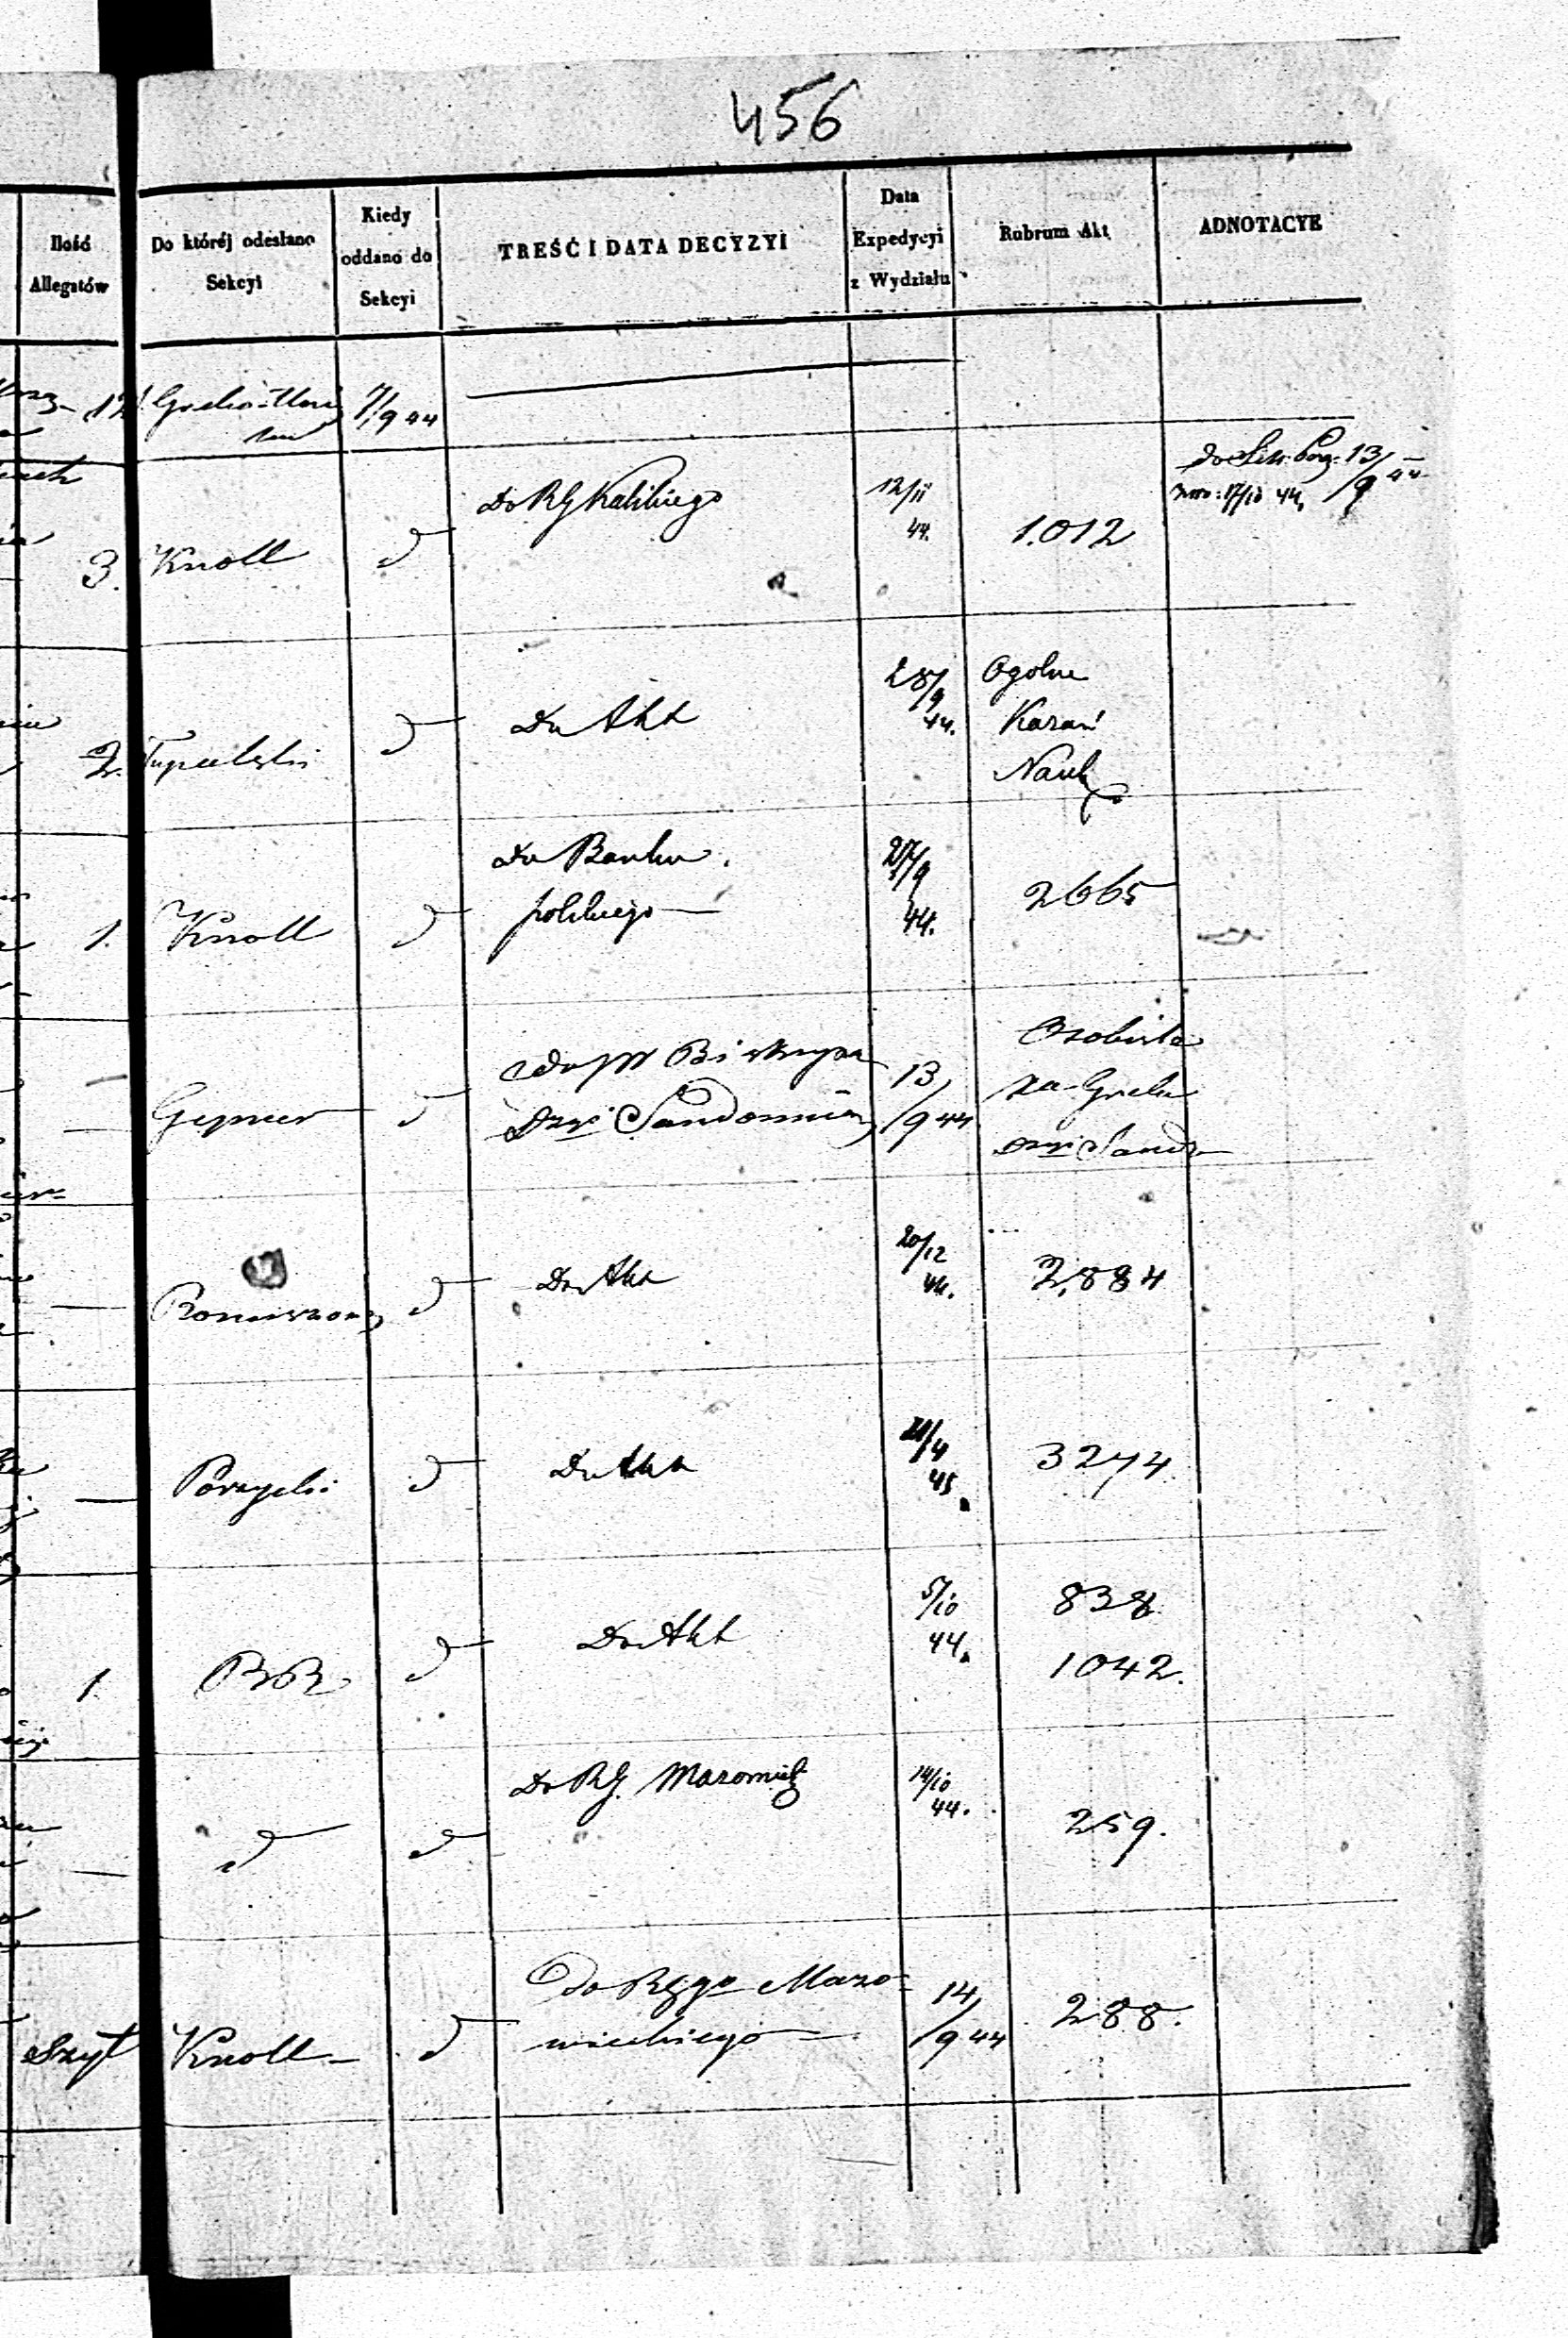 456
Ilość
Allegatów
Do któréj odesłano
Sekcyi
Kiedy
oddano do
Sekcyi
TREŚĆ I DATA DECYZYI
Data
Expedycyi
z Wydziału
Rubrum Akt
ADNOTACYE
7/9 44
3. Knoll d Do RG Kaliskiego 12/11 44. 1.012
13/9 44
17/10 44
2. d Do Akt 28/9 44. Ogolne
Kazań
Nauk
1. Knoll d Do Banku
polskiego 27/9 44. 2665
d Do JW Biskupa
Dyi Sandomier 13/9 44 Osobiste
Dyi Sand
d Do Akt 20/12 44. 2,884
Porzycki d Do Akt 21/4 45 3274
1. BB d Do Akt 5/10 44. 838
1042.
d d Do RG. Mazowiec 14/10 44. 259.
Szyt Knoll d Do RGgo Mazo=
wieckiego 14/9 44 288.